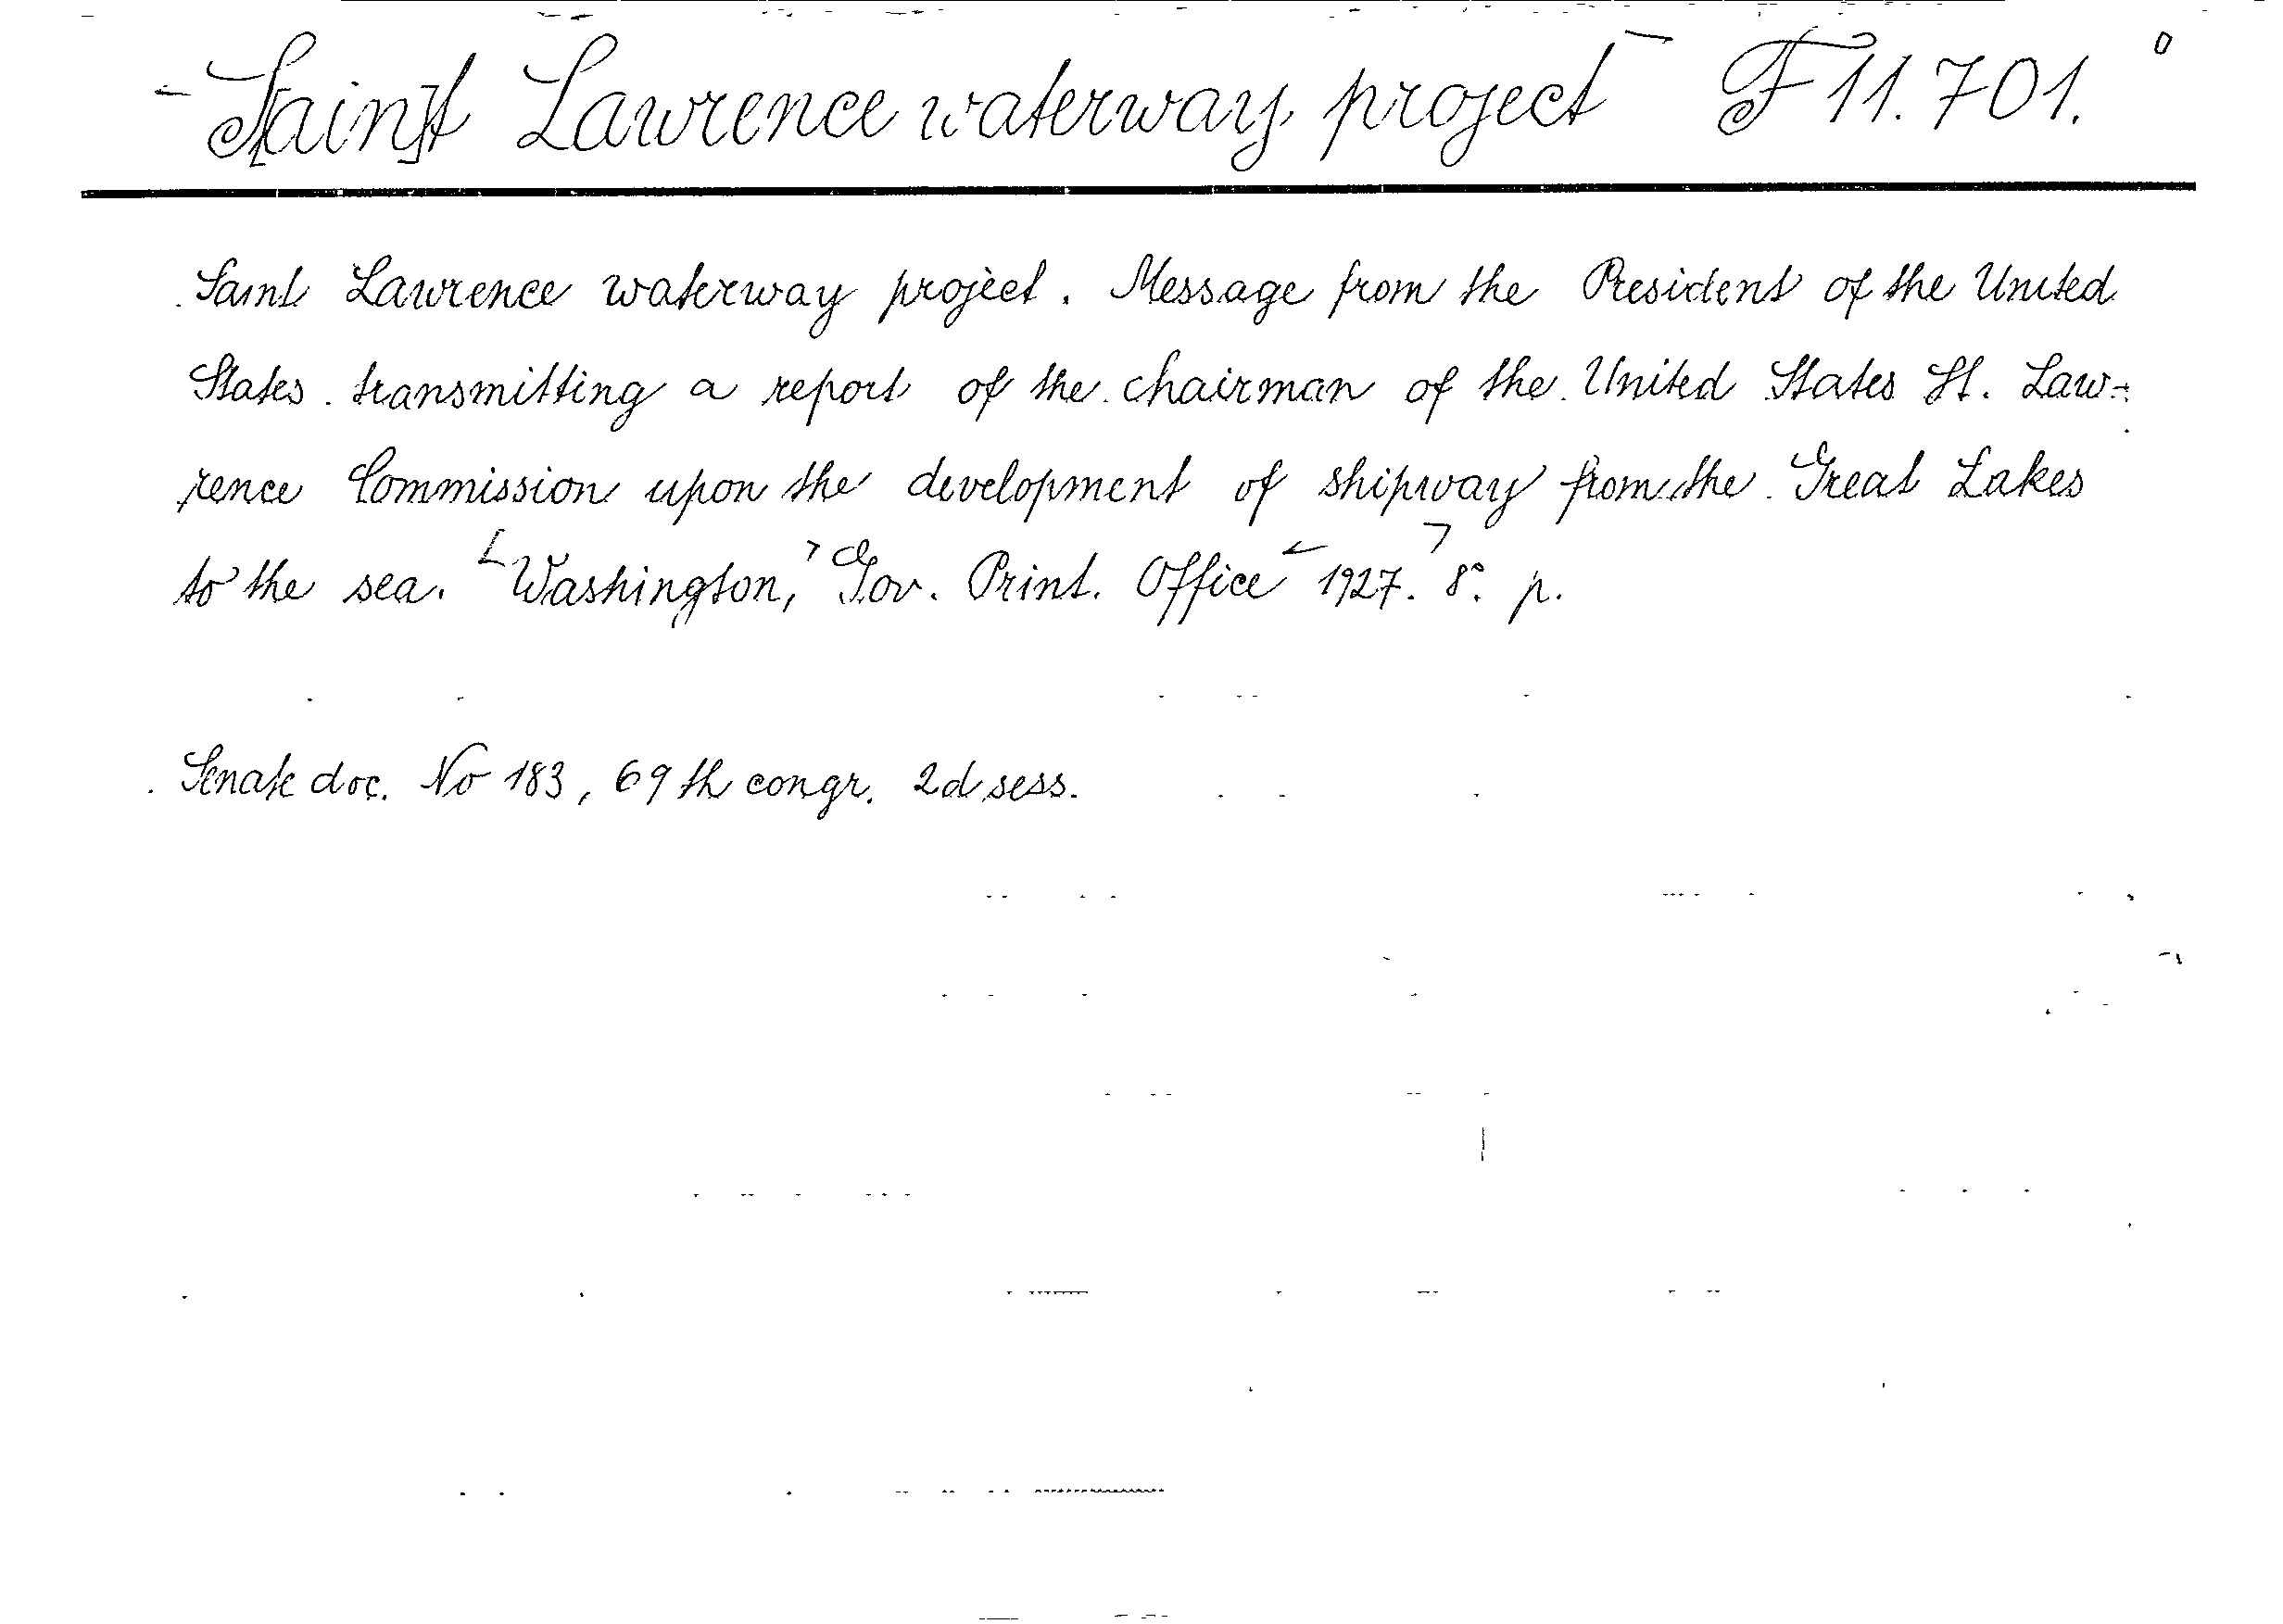 S[ain]t Lawrence waterway project F 11.701.
Saint Lawrence waterway project. Message from the President of the United
States transmitting a report of the chairman of the United States St. Law-
rence Commission upon the development of shipway from the Great Lakes
to the sea. Washington, Gov. Print. Office 1927. 8°. p.
Senate doc. No 183, 69th congr. 2d sess.